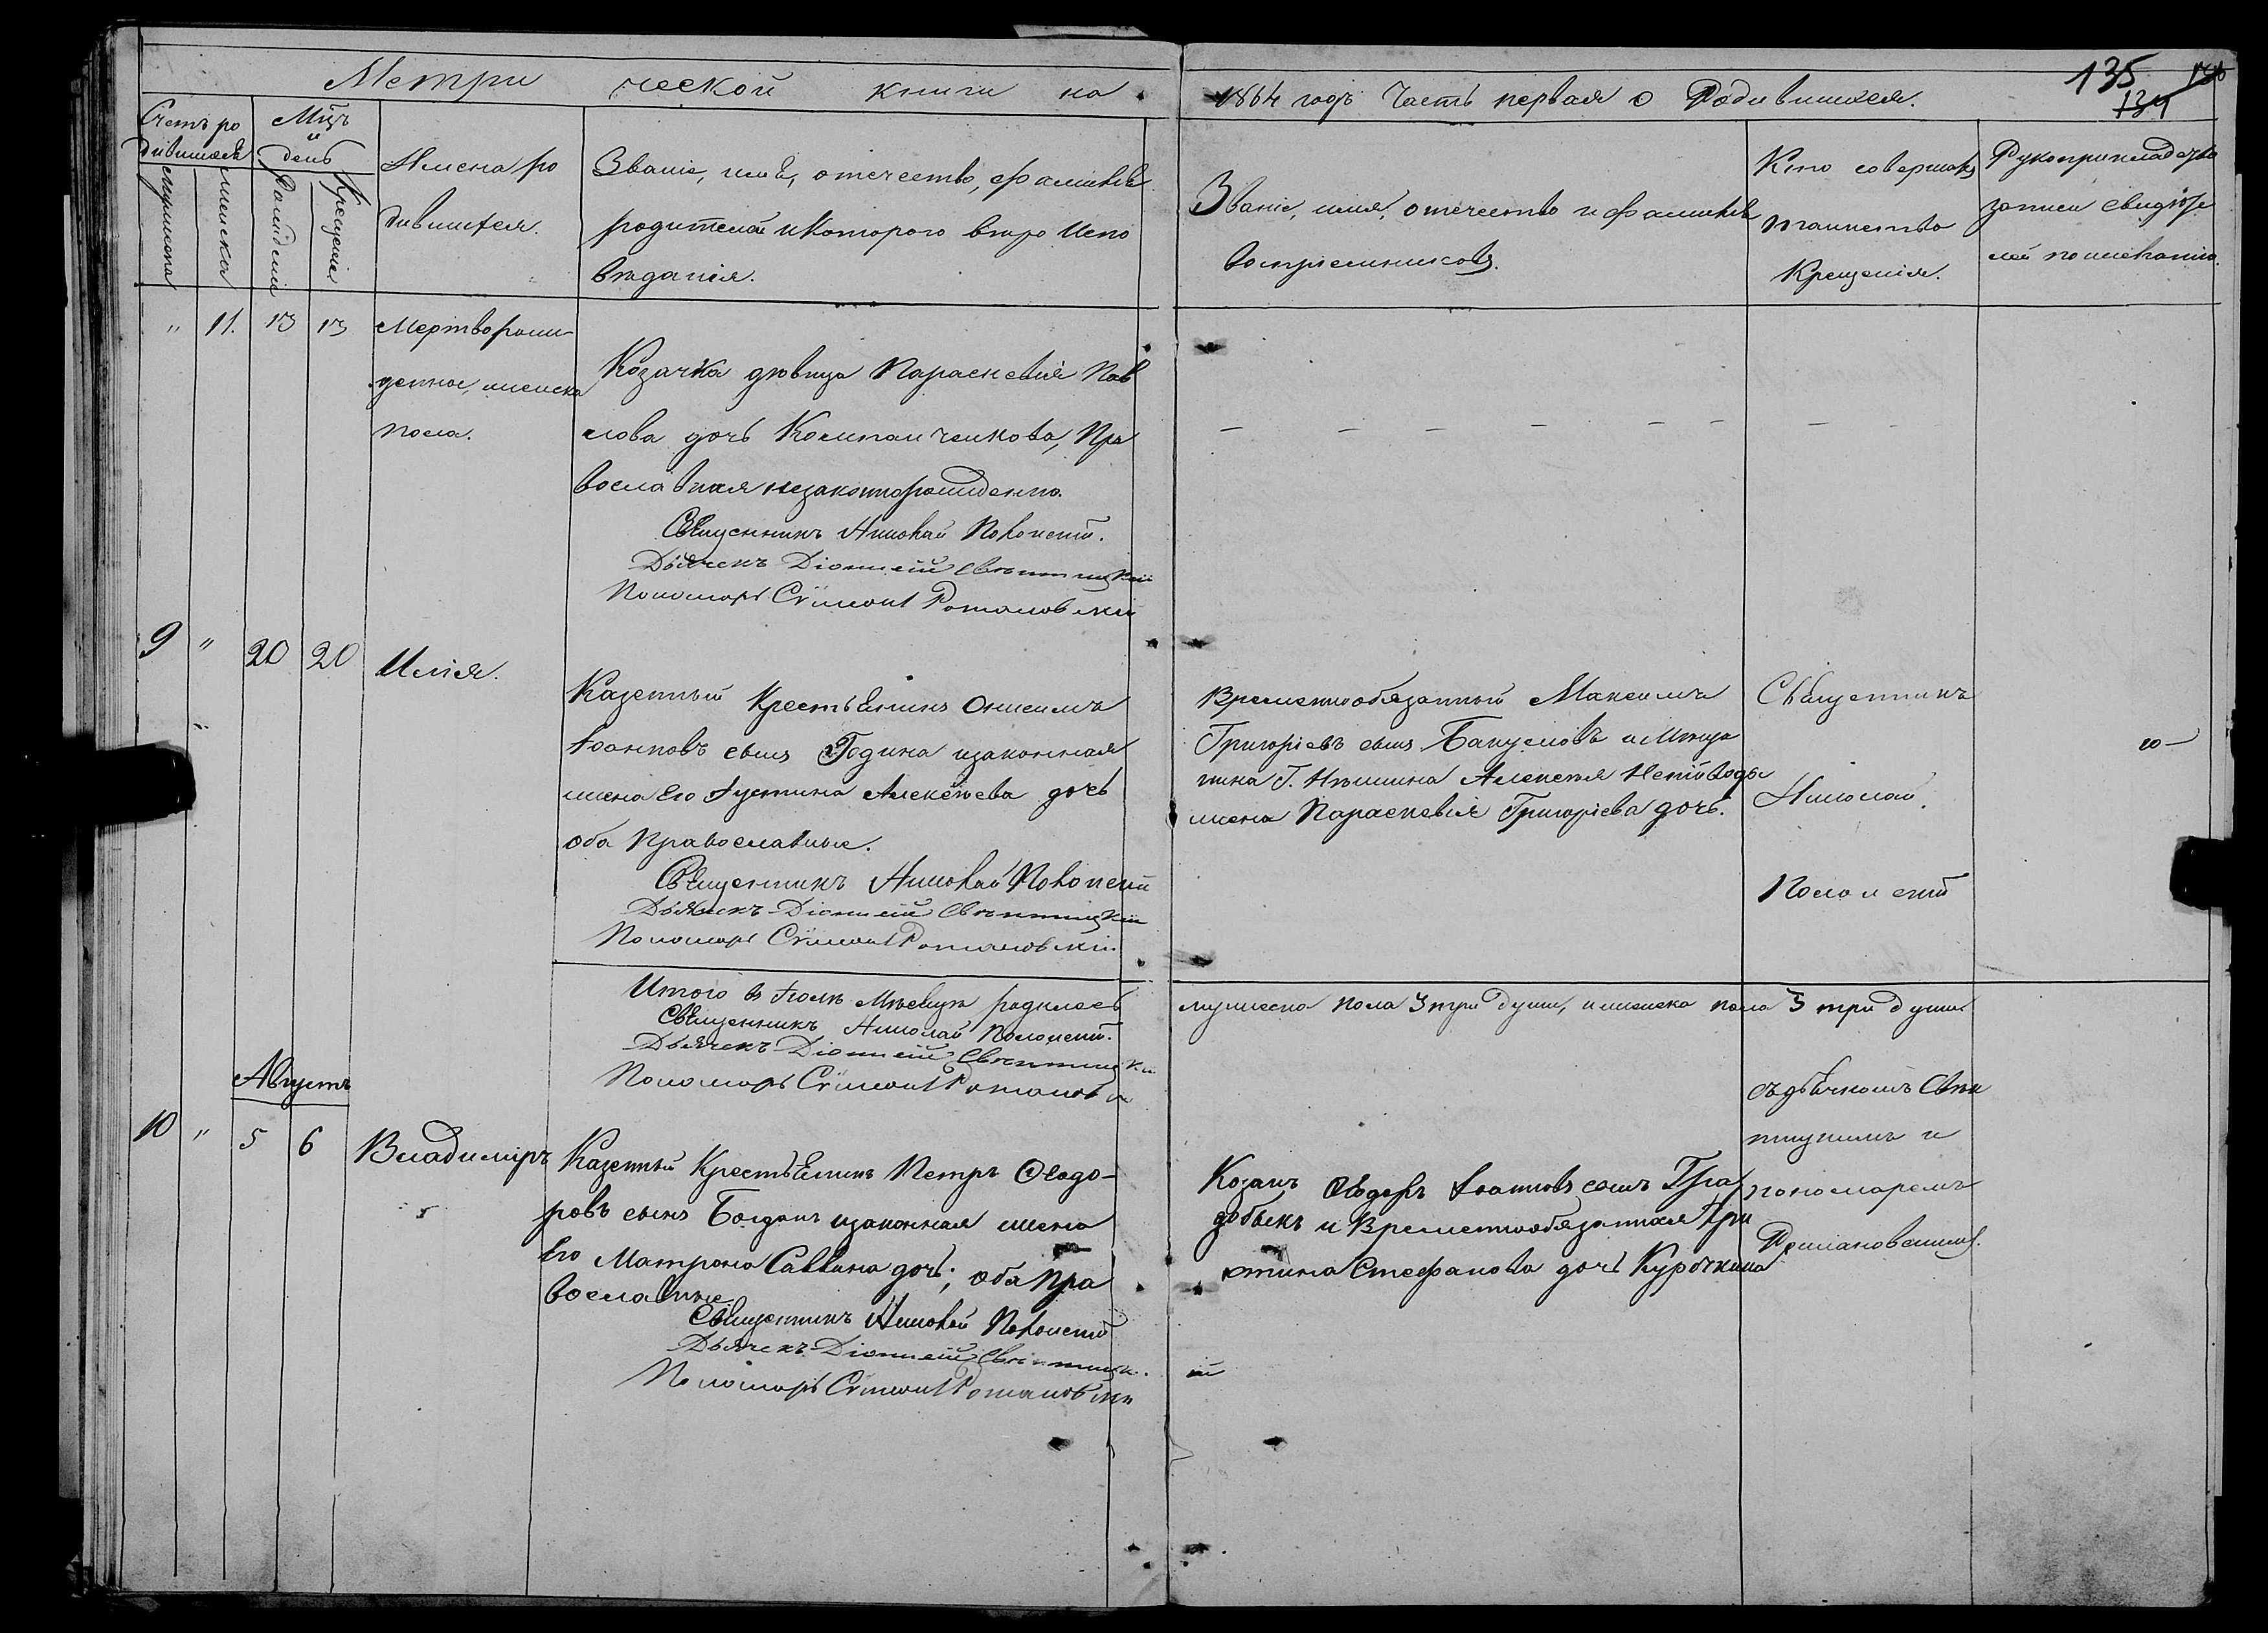 Метри ческой книги на 1864 годъ Часть первая о Родившихся.
135
134
Счетъ ро
дившихся
Мужеска
Женска
Мцъ
и
день
Рожденія
Крещенія
Имена ро
дившихся.
Званіе, имя, отечество, фамилія
родителей и котораго вѣро испо
вѣданія.
Званіе, имя, отечество и фамилія
воспріемниковъ.
Кто совершалъ
таинство
Крещенія.
Рукоприкладство
записи свидѣте
лей по желанію.
" 11. 13 13
Мертворож-
денное, женска
пола.
Козачка дѣвица Параскевія Пав
лова дочь Пра
вославная незаконнорожденно.
Священникъ Николай Полонскій.
Дьячекъ Діонисій Свѣнтицкій
Пономарь Сѵмеонъ Романовскій
9 " 20 20
Илія.
Казенный Крестьянинъ Онисимъ
Іоанновъ сынъ Година и законная
жена Его Іустина Алексѣева дочь
оба Православные.
Священникъ Николай Полонскій
Дьячекъ Діонисій Свѣнтицкій
Пономарь Сѵмеонъ Романовскій.
Временнообязанный Максимъ
Григоріевъ сынъ и Мѣща
нина Г. Нѣжина Алексѣя
жена Параскевія Григоріева дочь.
Священникъ
Николай
Полонскій
Итого въ Іюлѣ Мѣсяцѣ родилось мужеска пола 3 три души, и женска пола 3 три души
Священникъ Николай Полонскій.
Дьячекъ Діонисій Свѣнтицкій
Пономарь Сѵмеонъ Романов
Августъ
10 " 5 6
Владиміръ
Казенный Крестьянинъ Петръ Ѳеодо-
ровъ сынъ Богданъ и законная жена
Его Матрона Саввина дочь; оба Пра
вославные
Священникъ Николай Полонскій
Дьячекъ Діонисій Свѣнтицк. ій
Пономарь Сѵмеонъ Романовскій
Козакъ Ѳеодоръ Іоанновъ сынъ
и Временнообязанная Хри
стина Стефанова дочь Курочкина
съ дьячкомъ Свѣн
тицкимъ и
пономаремъ
Романовскимъ.